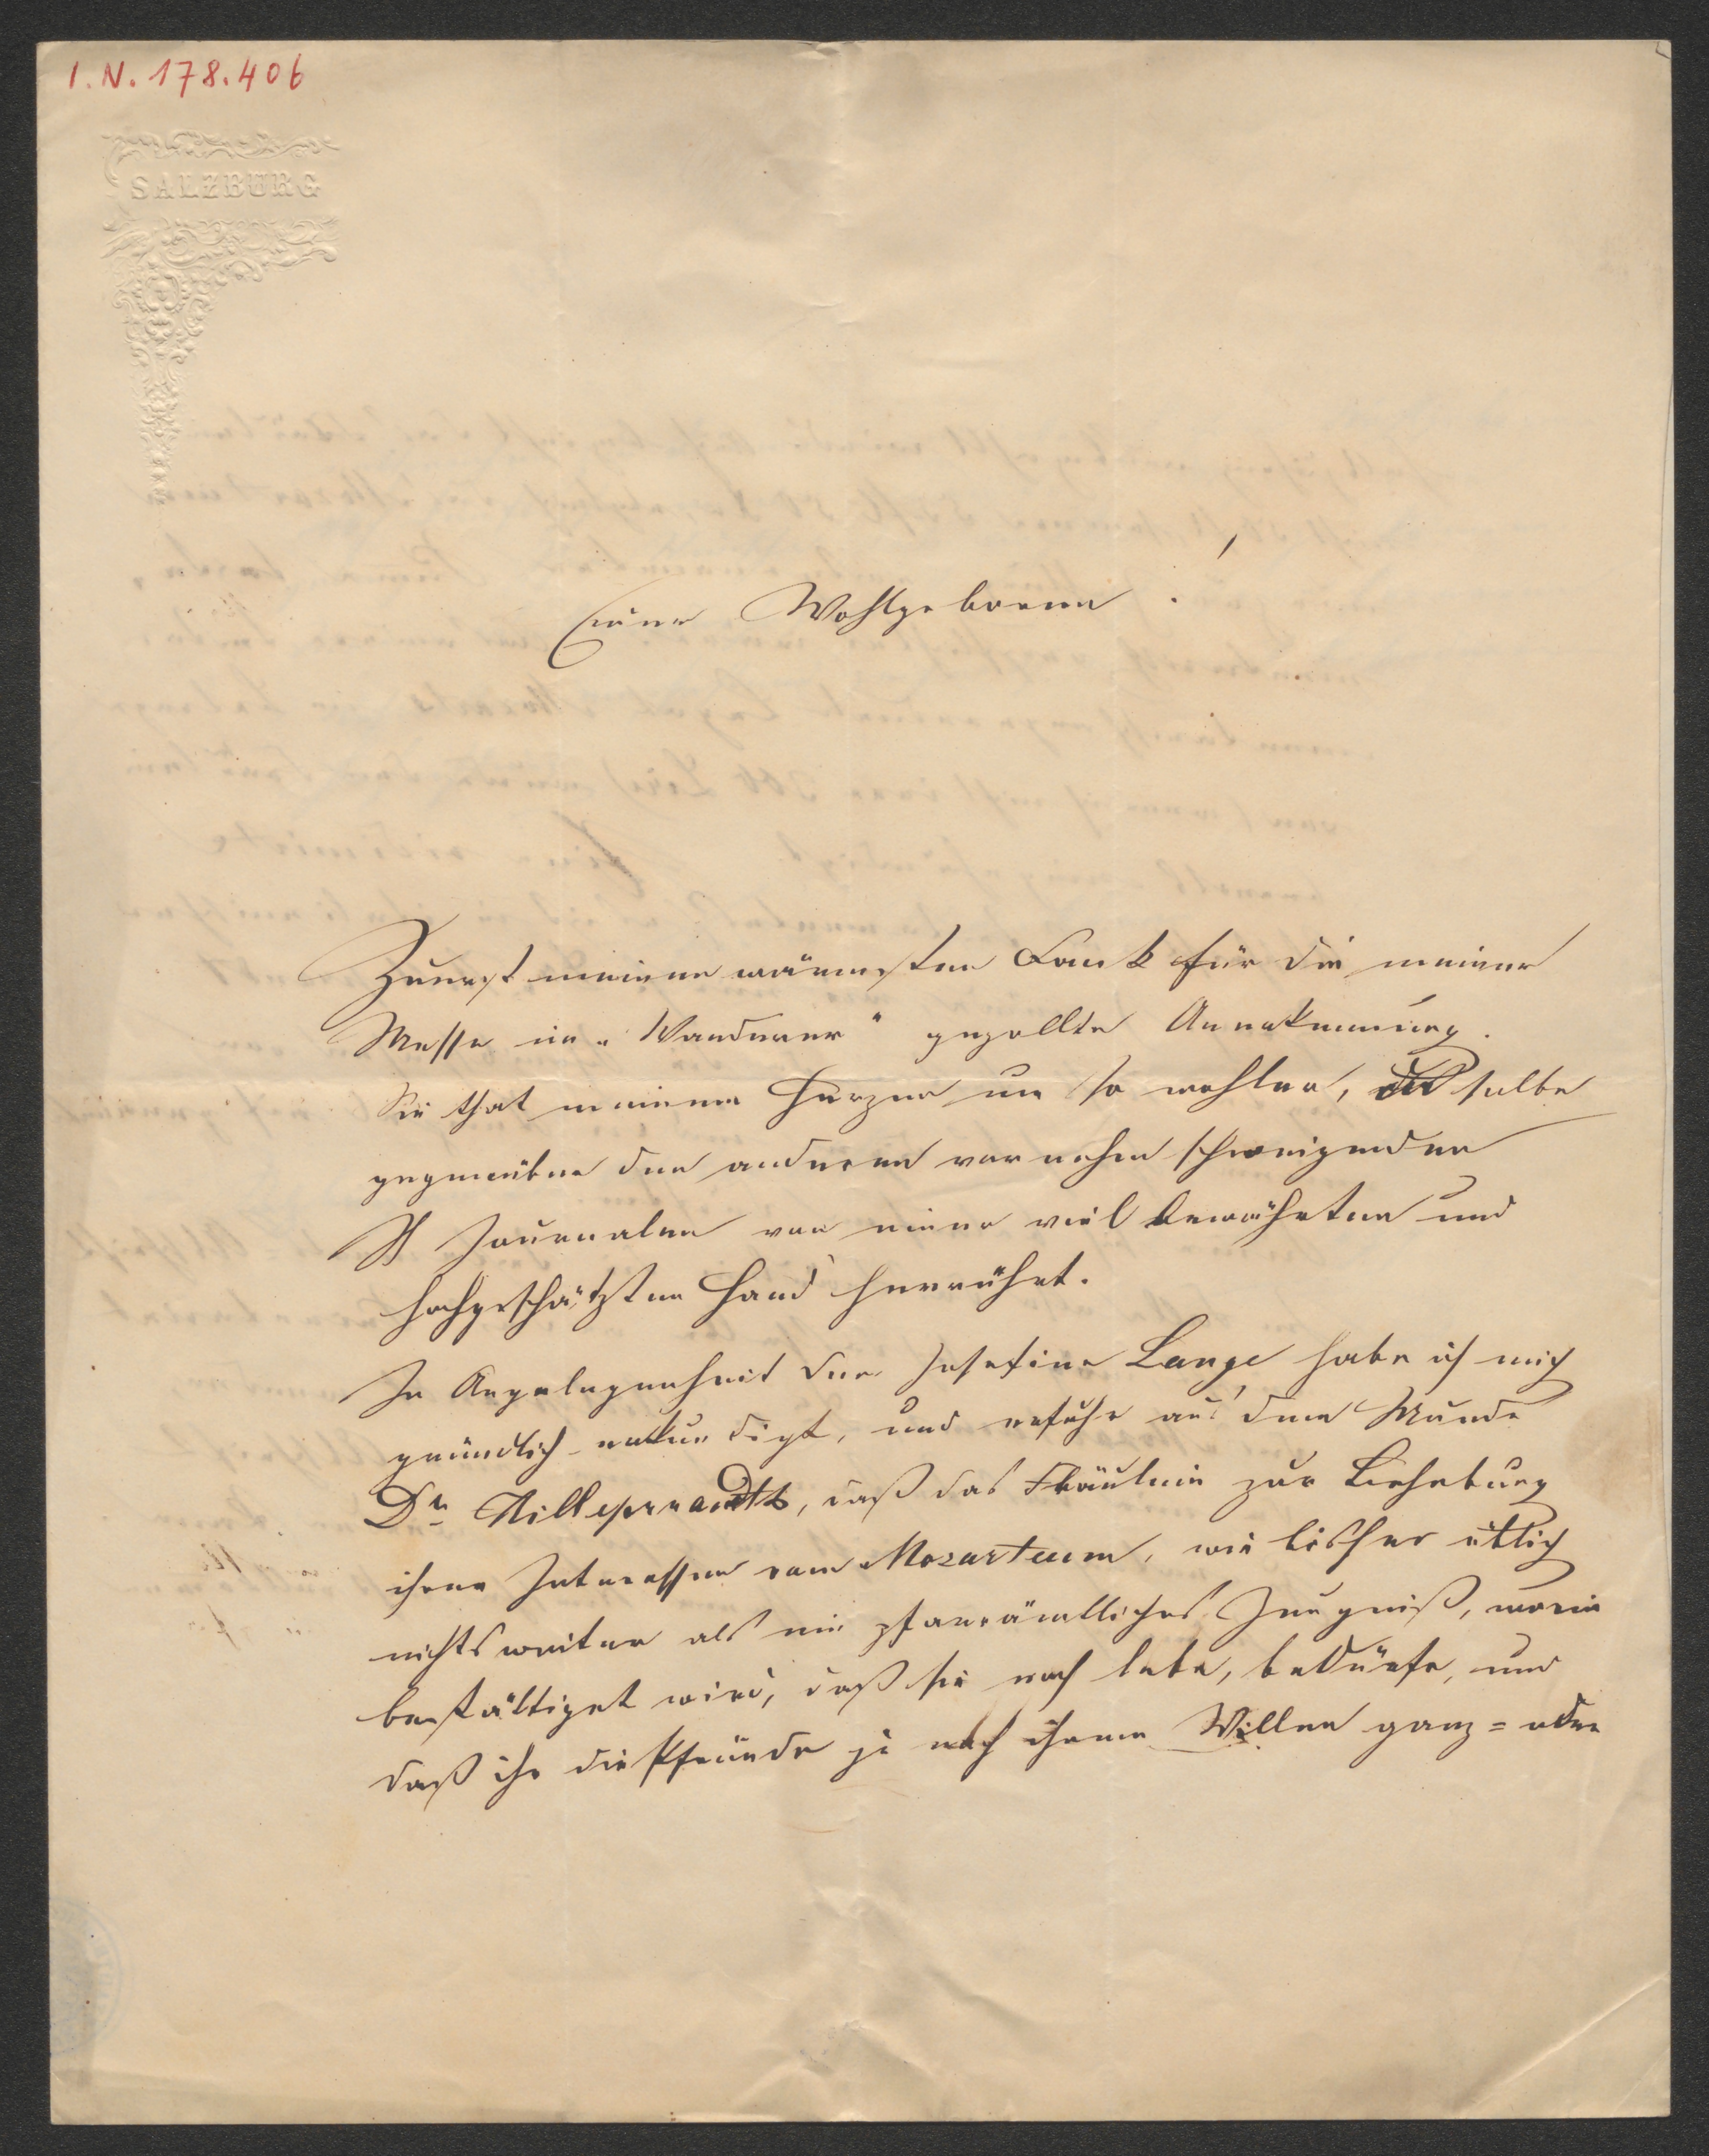 I. N. 178.406
SALZBURG
Euer Wohlgeboren !
Zuerst meinen wärmsten Dank für die meiner
Messe im „Wanderer" gezollte Anerkennung.
Sie that meinem Herzen um so wohler, da selbe
gegenüber den anderen vornehm schweigenden
Journalen von einer viel bewährten und
hochgeschätzten Hand herrührt.
In Angelegenheit der Josefine Lange habe ich mich
gründlich erkundigt, und erfuhr aus dem Munde
Dr Hilleprandts, daß das Fräulein zur Behebung
ihrer Interessen vom Mozarteum, wie bisher üblich
nichts weiter als ein pfarrämtliches Zeugniß, worin
bestättiget wird, daß sie noch lebe, bedürfe, und
daß ihr die Pfründe je nach ihrem Willen ganz= oder